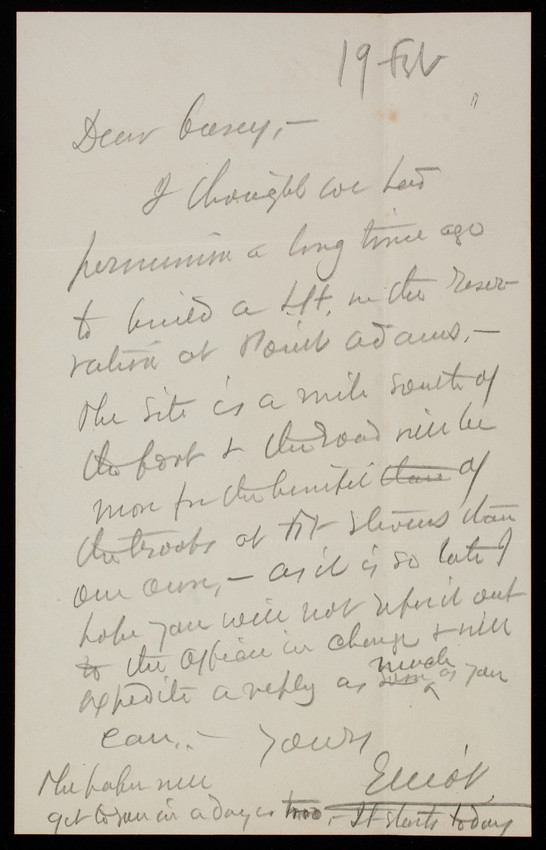 19 Feb
Dear Casey, —
I thought we had
permission a long time ago
to build a L.H. on the reser-
vation at Point Adams, —
The site is a mile south of
the fort & the road will be
more for the benefit than of
the troops at Ft Stevens than
our own, — as it is so late I
hope you will not refer it out
to the officer in charge & will
expedite a reply as much as you
can. — Yours
Elliot
The paper will
get to you in a day or two, — It starts today